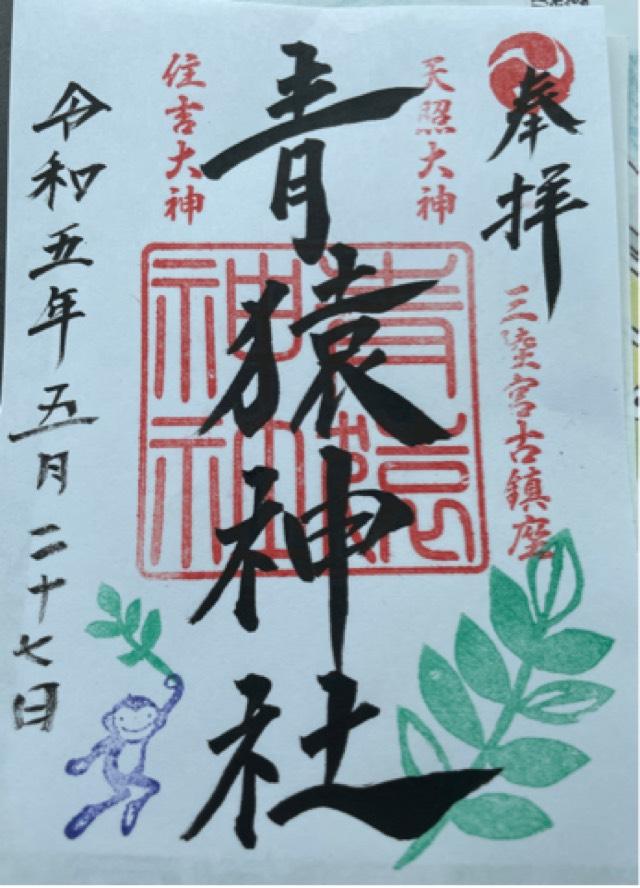 奉拝
三陸宮古鎮座
天照大神
青猿神社
青猿神社
住吉大神
令和五年五月二十七日